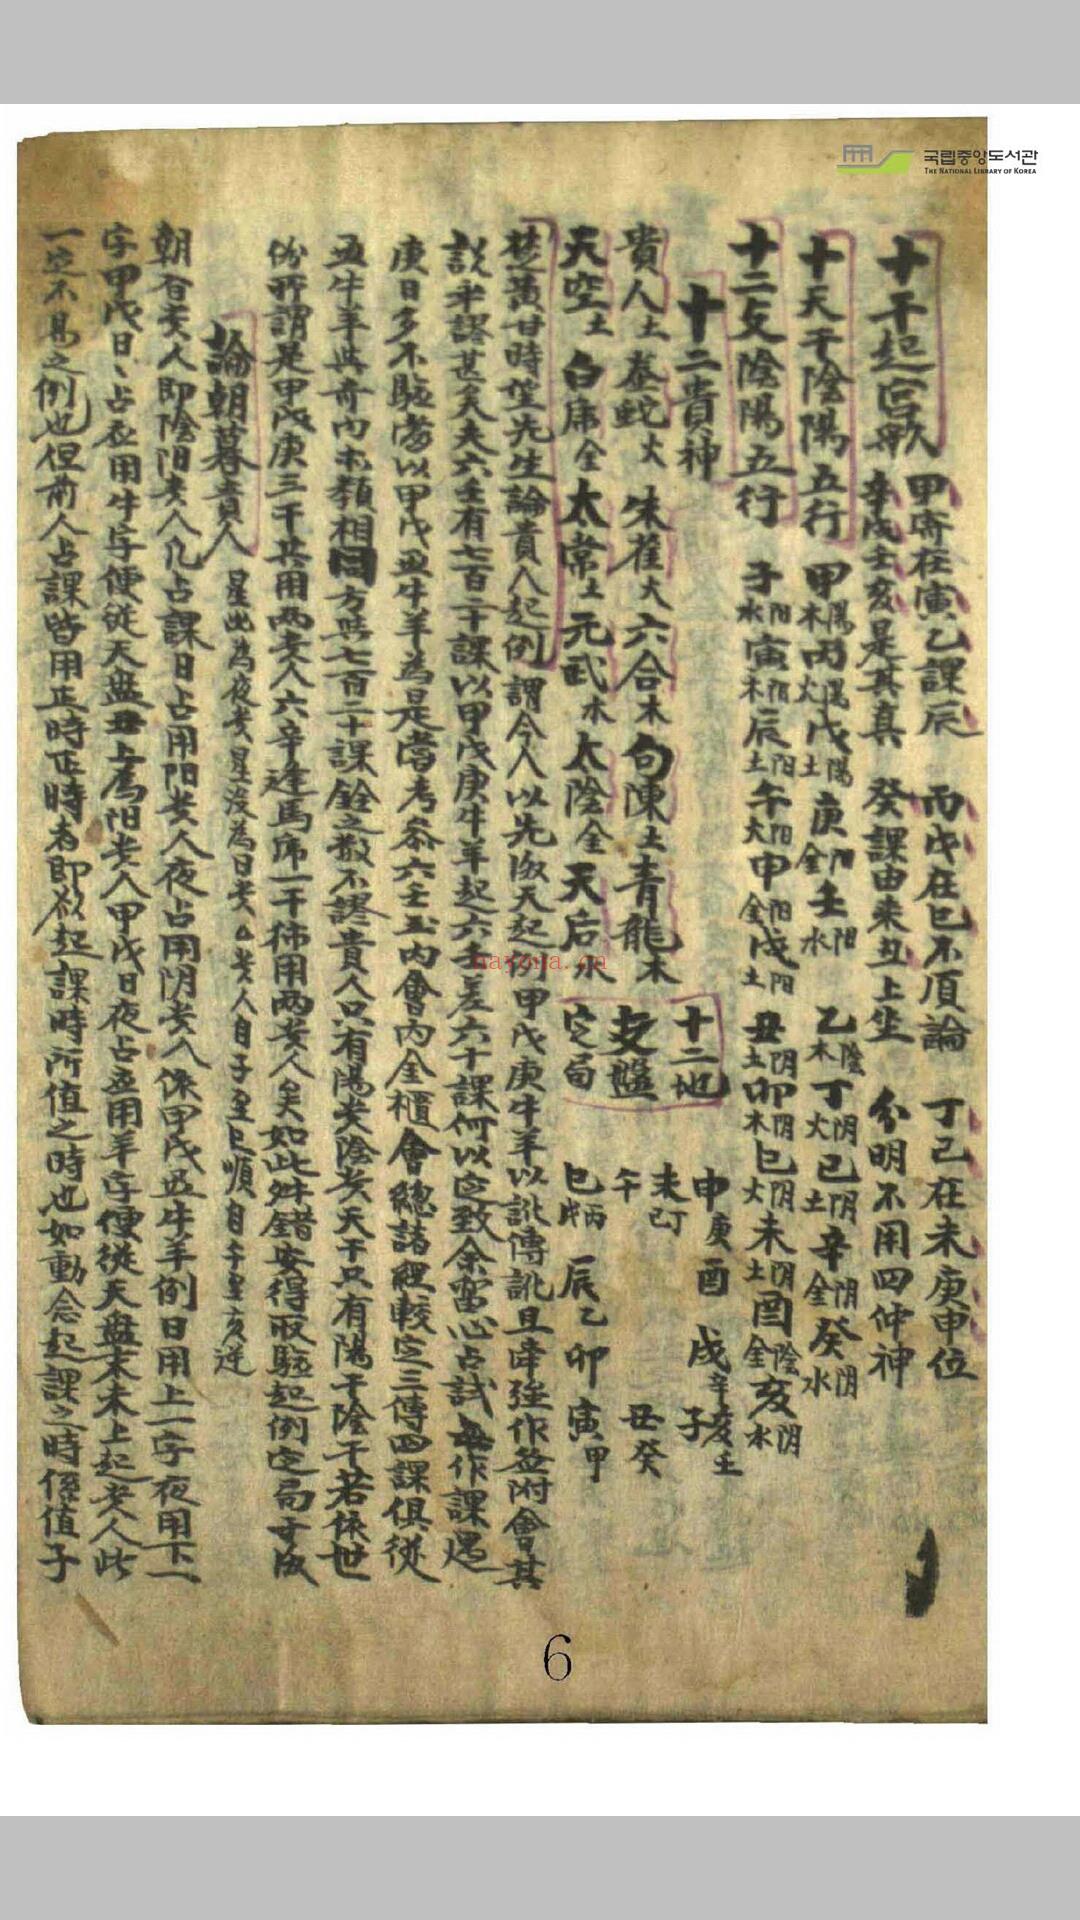 국립중앙도서관
THE NATIONAL LIBRARY OF KOREA
十干起宮歌 甲寄在寅乙課辰 丙戊在巳不須論 丁己在未庚申位
辛戌壬亥是其真 癸課由來丑上坐 分明不用四仲神
十天干陰陽五行 甲陽木丙陽火戊陽土庚阳金壬阳水 乙陰木丁阴火己阴土辛阴金癸阴水
十二支陰陽五行 子阳水寅阳木辰阳土午阳火申阳金戌阳土 丑阴土卯阴木巳阴火未阴土酉陰金亥阴水
十二貴神
貴人土 螣蛇火 朱雀火六合木句陳土青龍木
天空土 白虎金太常土元武水太陰金天后水
十二地
支盤
定局
申庚酉 戌辛亥壬
未己丁 子
午 丑癸
巳丙戊 辰乙卯 寅甲
楚黃甘時望先生論貴人起例 謂今人以先後天起甲戊庚牛羊以訛傳訛且牽强作並附會其
説年謬甚矣夫六壬有七百二十課以甲戊庚牛羊起六壬差六十課何以定致余留心占試每作課遇
庚日多不驗嘗以甲戊丑牛羊為是當考於六壬玉內會內金櫃會總諸經較定三傳四課俱從
丑牛羊與奇門亦類相同方與七百二十課銓之數不謬貴人只有陽貴陰貴天干只有陽干陰干若依世
俗所謂是甲戊庚三干共用兩貴人六辛逢馬虎一干佈用兩貴人矣如此舛錯安得取驗起例定局可成
論朝暮貴人 星出為夜貴星没為日貴 貴人自子至巳順自午至亥逆
朝暮貴人即陰阳貴人凡占課日占用阳貴人夜占用阴貴人依甲戊丑牛羊例日用上一字夜用下一
字甲戊日日占应用牛字便從天盤丑上為阳貴人甲戊日夜占应用羊字便從天盤未上起貴人此
一定不易之例也但前人占課皆用正時正時者即以起課時所值之時也如動念起課之時係值子
6
nayona.cn